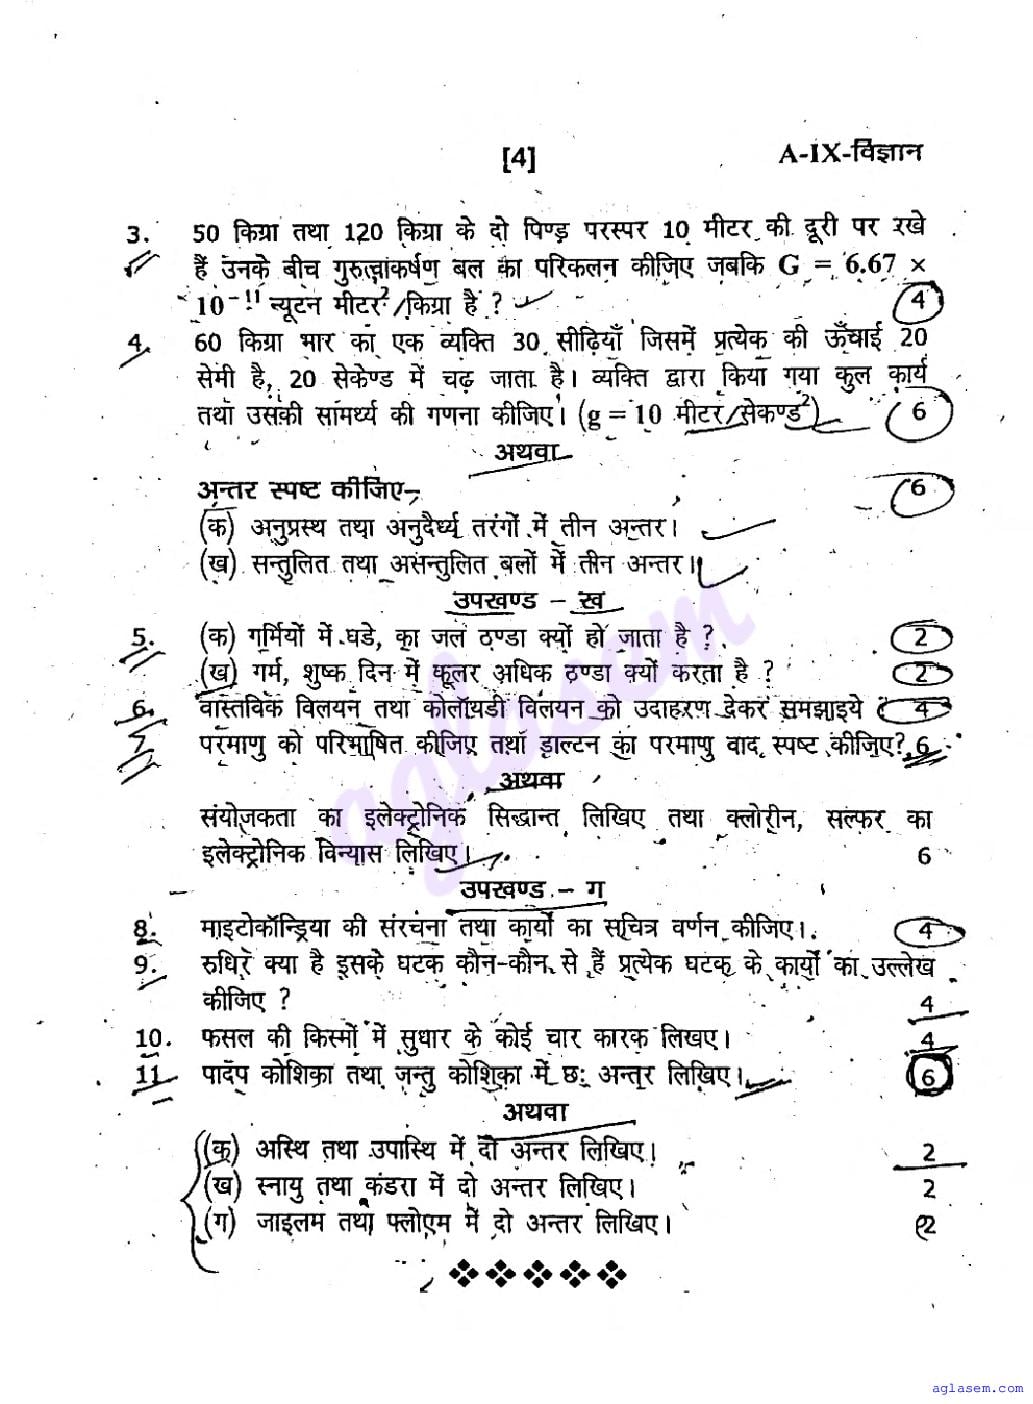 [4]
A-IX-विज्ञान
3. 50 किग्रा तथा 120 किग्रा के दो पिण्ड परस्पर 10 मीटर की दूरी पर रखे
हैं उनके बीच गुरुत्वाकर्षण बल का परिकलन कीजिए जबकि G = 6.67 ×
10⁻¹¹ न्यूटन मीटर²/किग्रा हैं ? 4
4. 60 किग्रा भार का एक व्यक्ति 30 सीढ़ियाँ जिसमें प्रत्येक की ऊँचाई 20
सेमी है, 20 सेकेण्ड में चढ़ जाता है। व्यक्ति द्वारा किया गया कुल कार्य
तथा उसकी सामर्थ्य की गणना कीजिए। (g = 10 मीटर/सेकण्ड²) 6
अथवा
अन्तर स्पष्ट कीजिए- 6
(क) अनुप्रस्थ तथा अनुदैर्ध्य तरंगों में तीन अन्तर।
(ख) सन्तुलित तथा असन्तुलित बलों में तीन अन्तर।
उपखण्ड - ख
5. (क) गर्मियों में घडे, का जल ठण्डा क्यों हो जाता है ? 2
(ख) गर्म, शुष्क दिन में कूलर अधिक ठण्डा क्यों करता है ? 2
6. वास्तविक विलयन तथा कोलॉयडी विलयन को उदाहरण देकर समझाइये 4
7. परमाणु को परिभाषित कीजिए तथा डाल्टन का परमाणु वाद स्पष्ट कीजिए? 6
अथवा
संयोजकता का इलेक्ट्रोनिक सिद्धान्त लिखिए तथा क्लोरीन, सल्फर का
इलेक्ट्रोनिक विन्यास लिखिए। 6
उपखण्ड - ग
8. माइटोकॉन्ड्रिया की संरचना तथा कार्यो का सचित्र वर्णन कीजिए। 4
9. रुधिर क्या है इसके घटक कौन-कौन से हैं प्रत्येक घटक के कार्यों का उल्लेख
कीजिए ? 4
10. फसल की किस्मों में सुधार के कोई चार कारक लिखए। 4
11. पादप कोशिका तथा जन्तु कोशिका में छः अन्तर लिखिए। 6
अथवा
(क) अस्थि तथा उपास्थि में दो अन्तर लिखिए। 2
(ख) स्नायु तथा कंडरा में दो अन्तर लिखिए। 2
(ग) जाइलम तथा फ्लोएम में दो अन्तर लिखिए। 2
aglasem
aglasem.com